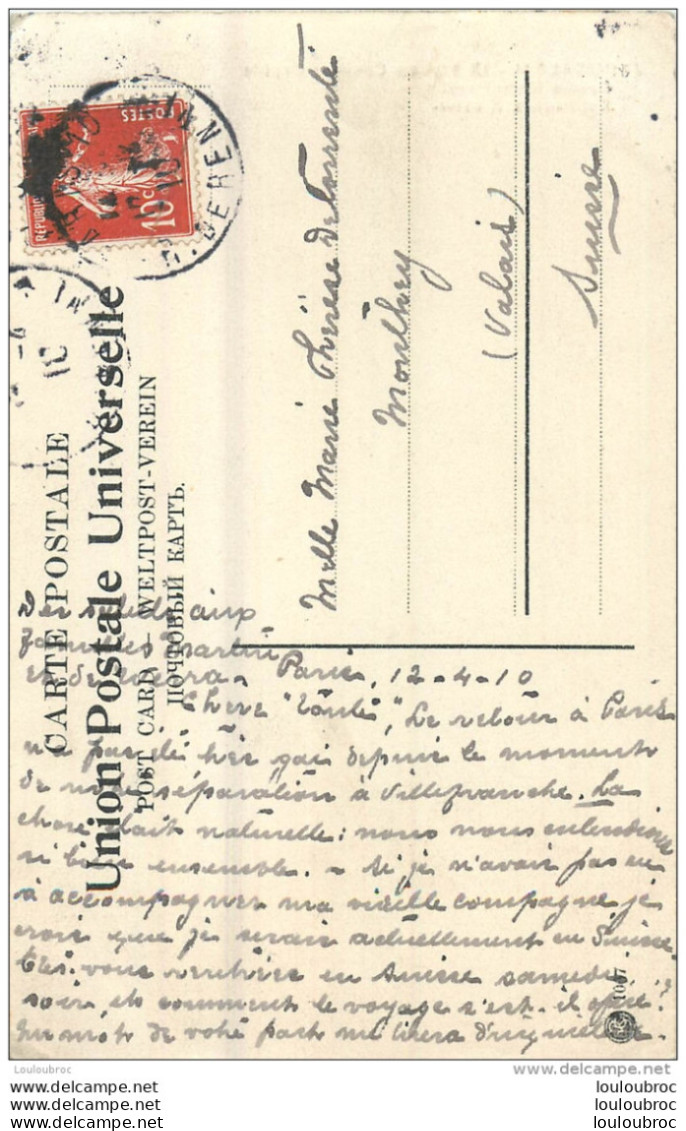 CARTE POSTALE
Union Postale Universelle
POST CARD — WELTPOST-VEREIN
ПОЧТОВЫЙ КАРТЪ.
POSTES
10c
Melle Marie Thérèse de Torrenté
Monthey
(Valais)
Suisse
aux
familles Martin
et de
Paris, 12-4-10
Chère "Tante", Le retour à Paris
n'a pas été très gai depuis le moment
de notre séparation à Villefranche. La
chose était naturelle: nous nous entendions
si bien ensemble. - Si je n'avais pas eu
à accompagner ma vieille compagne je
crois que je serais actuellement en Suisse
Etes-vous rentrées en Suisse samedi
soir, et comment le voyage s'est-il opéré?
Un mot de votre part me tirera d'inquiétude.
1007
LOULOUBROC
www.delcampe.net
louloubroc
louloubroc
louloubroc
louloubroc
louloubroc
louloubroc